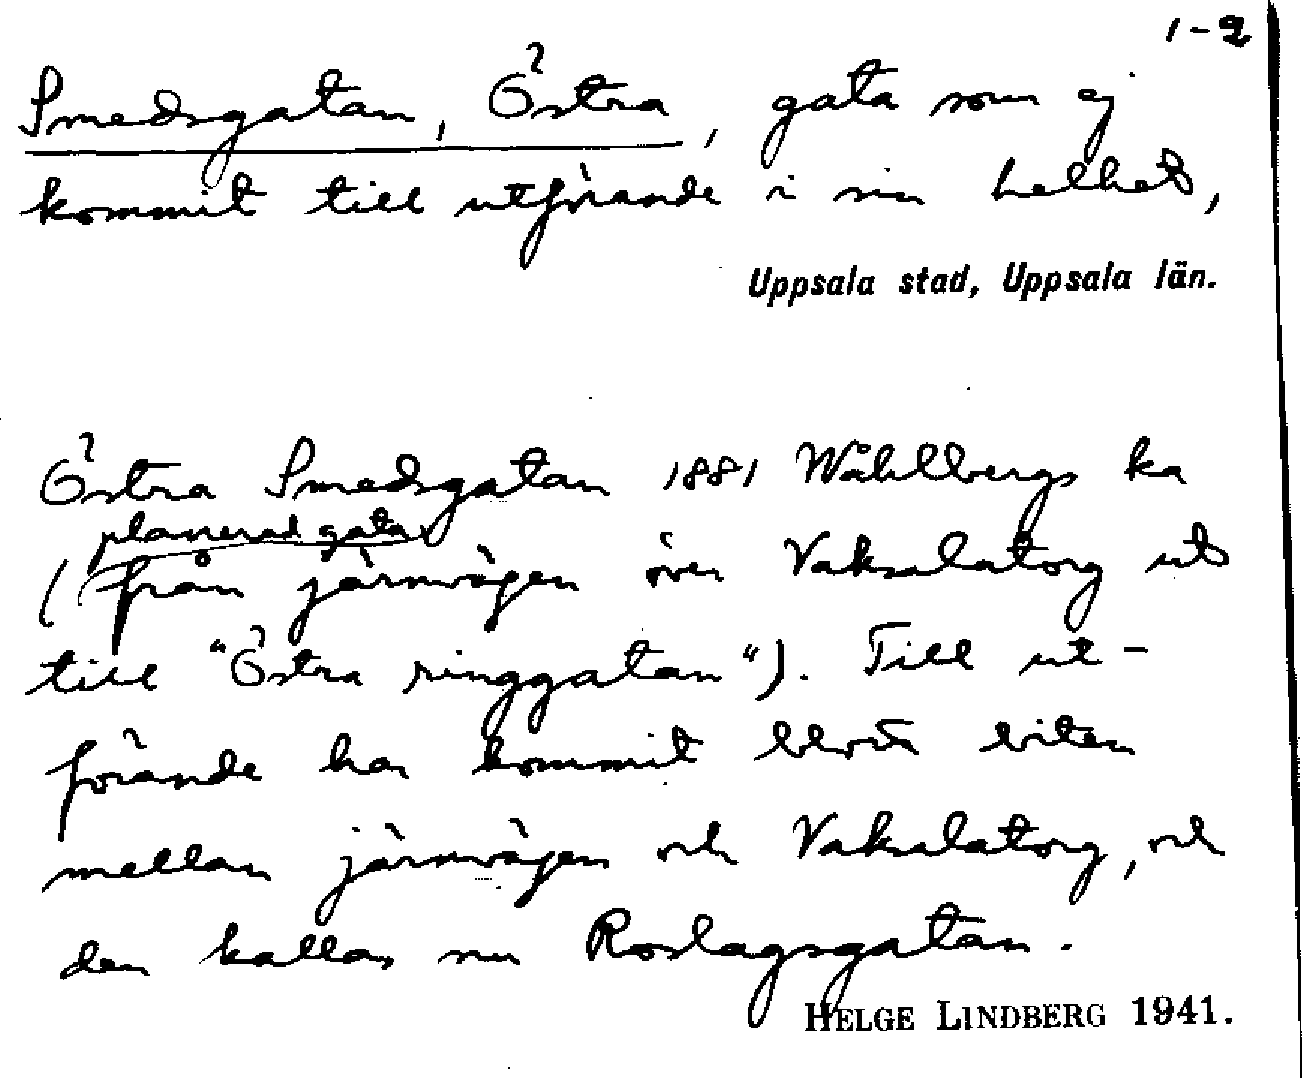 1-2
Smedsgatan, Östra, gata som ej
kommit till utförande i sin helhet,
Uppsala stad, Uppsala län.
Östra Smedsgatan 1881 Wåhlbergs ka
planerad gata
( från järnvägen över Vaksalatorg ut
till "Östra ringgatan"). Till ut-
förande har kommit blott biten
mellan järnvägen och Vaksalatorg, och
den kallas nu Roslagsgatan.
HELGE LINDBERG 1941.